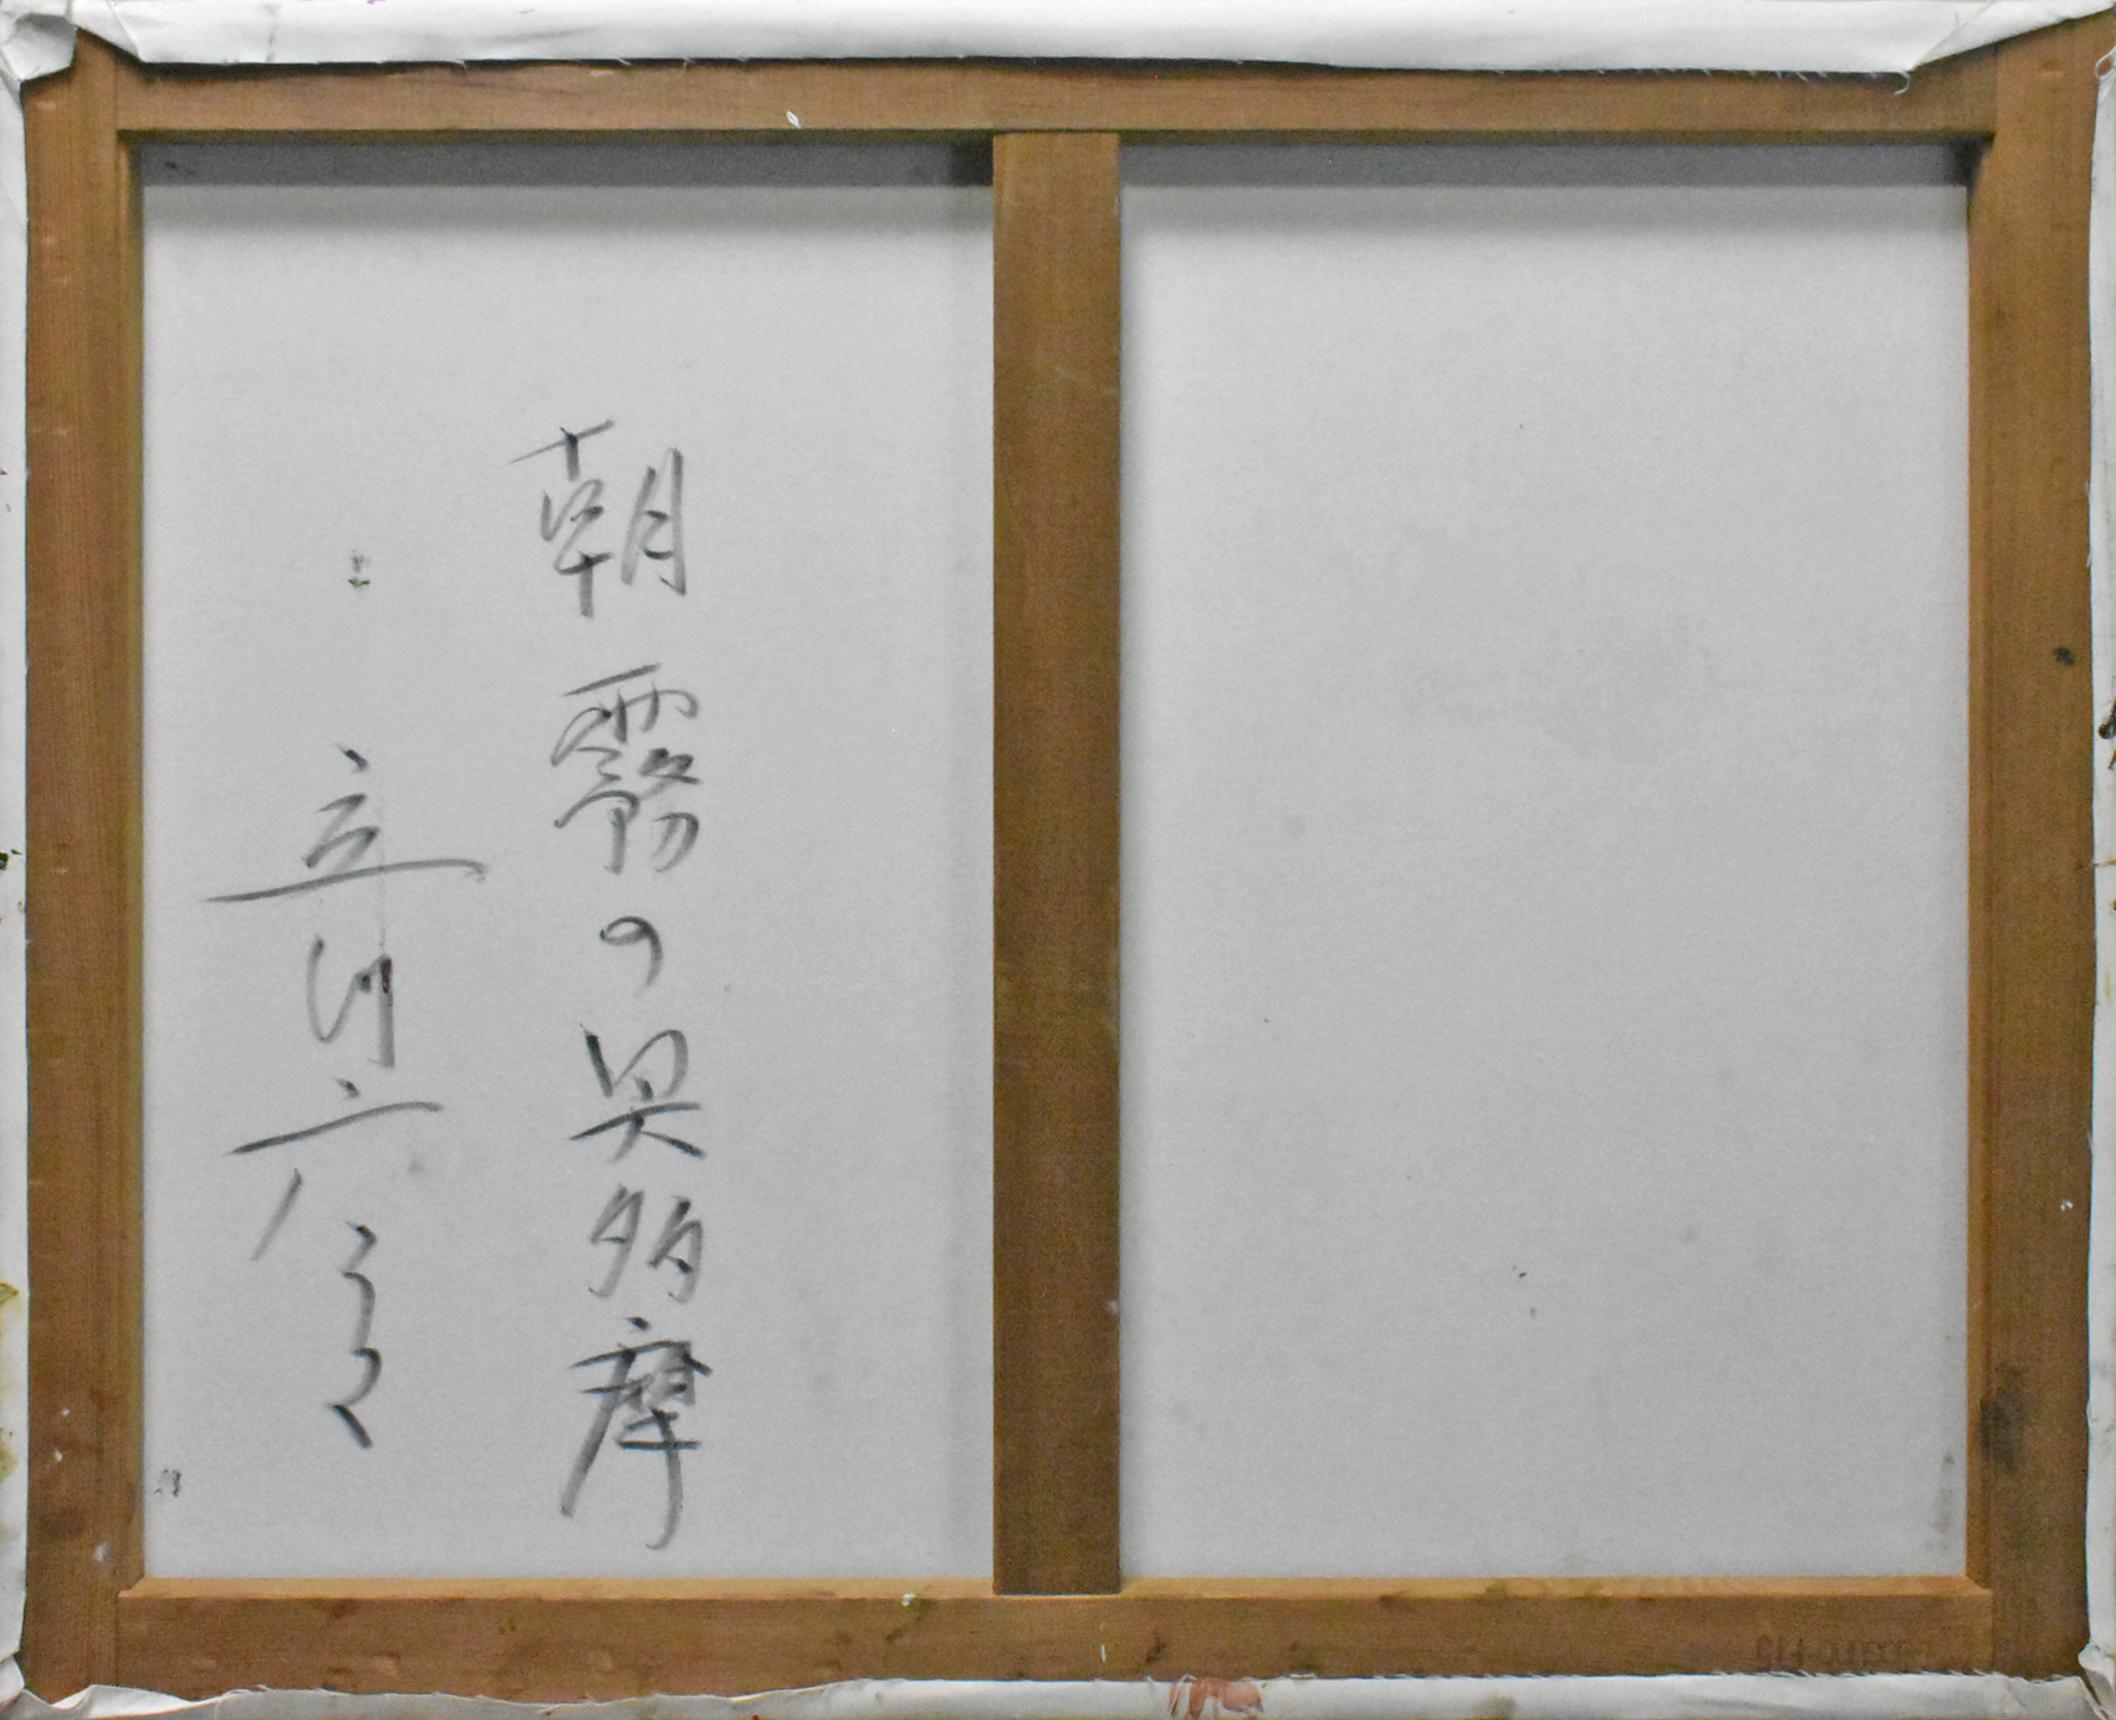 朝霧の奥多摩
立川六